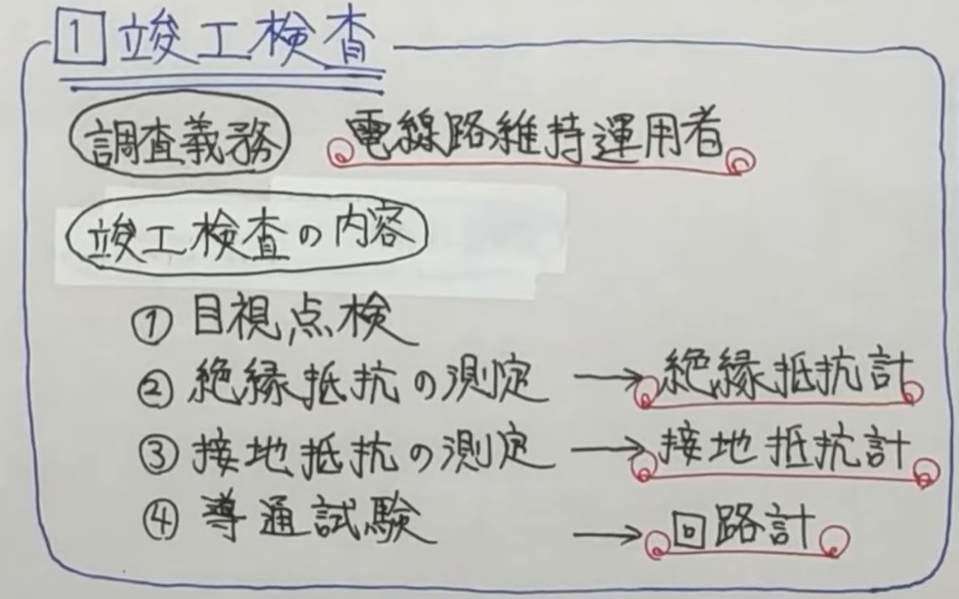 1 竣工検査
調査義務 電線路維持運用者
竣工検査の内容
① 目視点検
② 絶縁抵抗の測定 → 絶縁抵抗計
③ 接地抵抗の測定 → 接地抵抗計
④ 導通試験 → 回路計